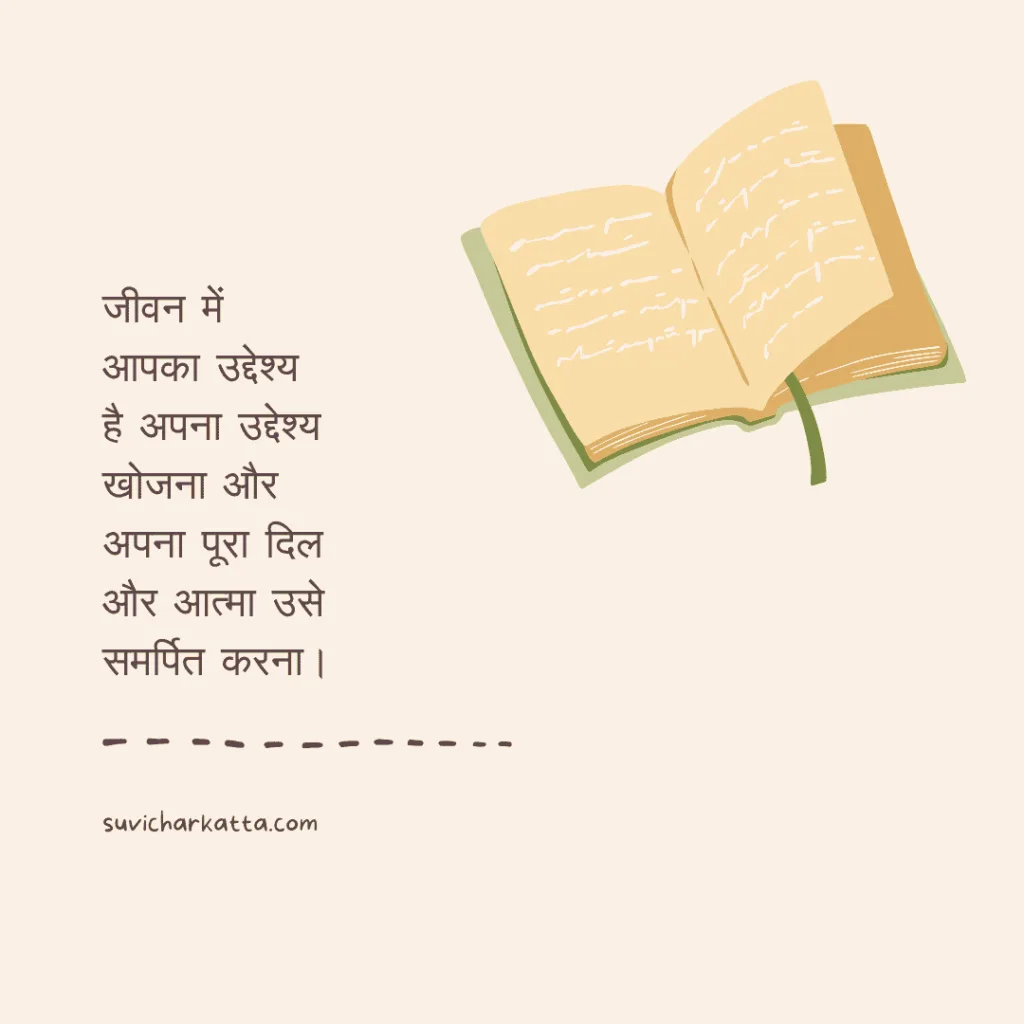 जीवन में
आपका उद्देश्य
है अपना उद्देश्य
खोजना और
अपना पूरा दिल
और आत्मा उसे
समर्पित करना।
suvicharkatta.com